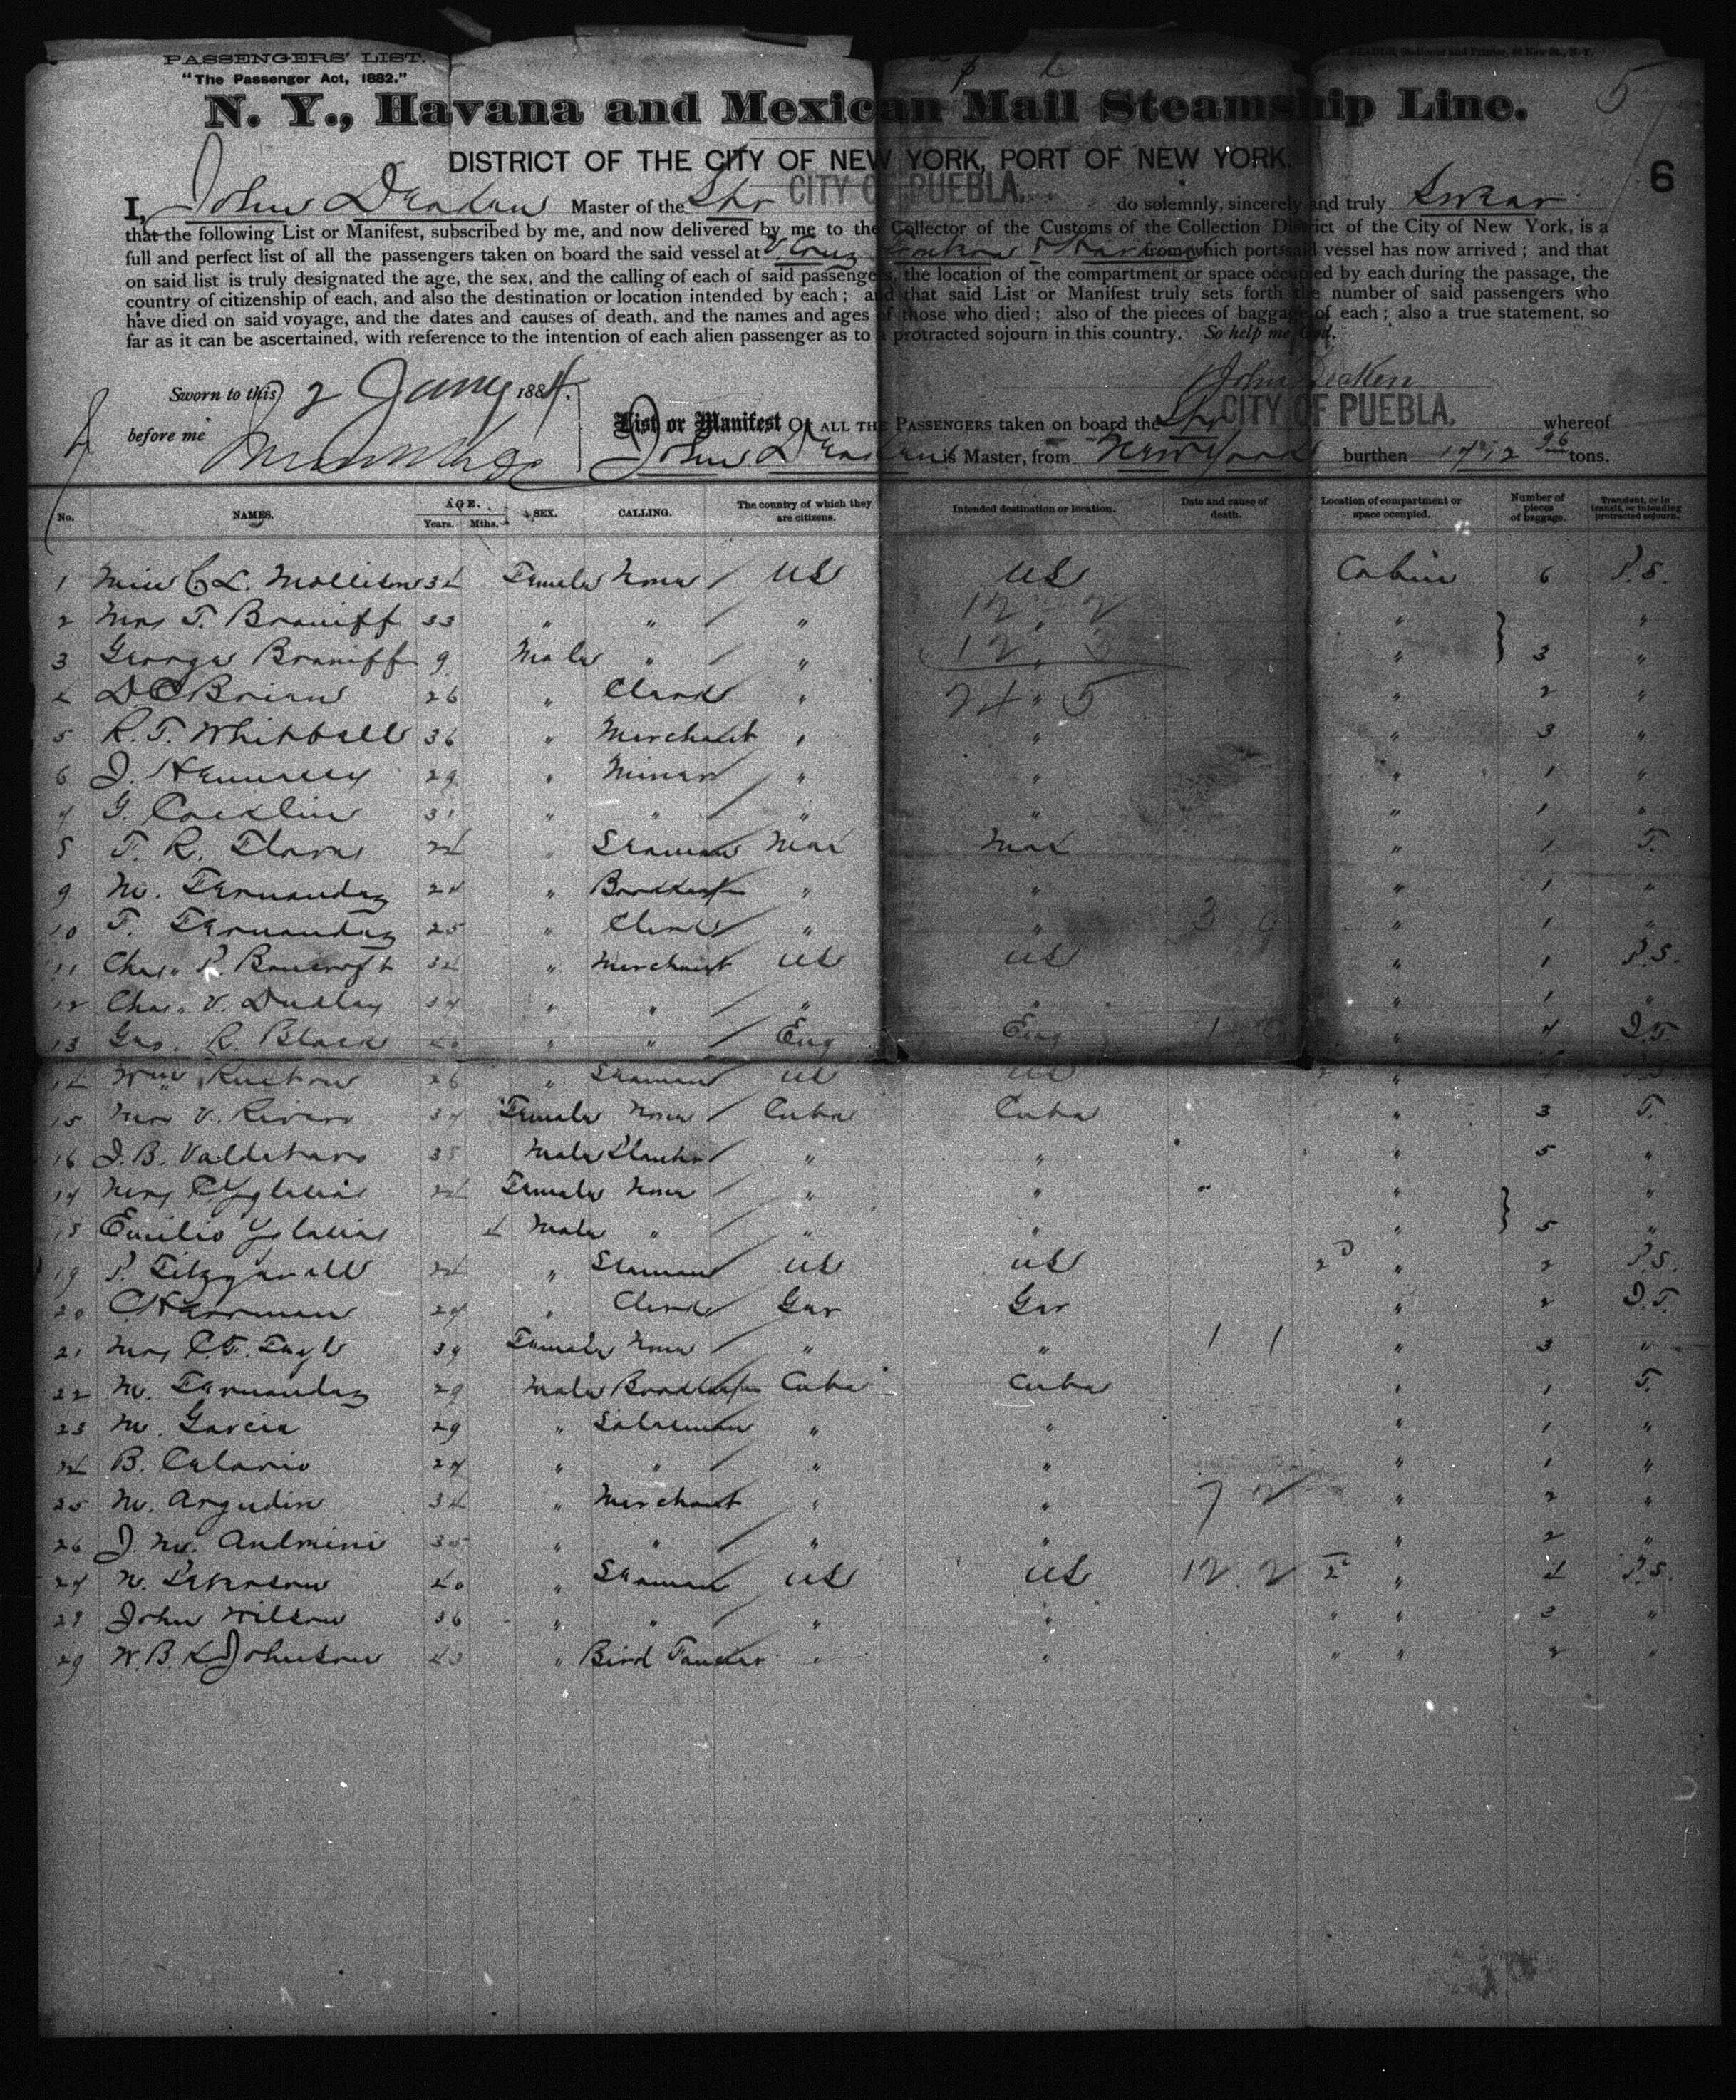 PASSENGERS' LIST.
"The Passenger Act, 1882."
N. Y., Havana and Mexican Mail Steamship Line.
5
DISTRICT OF THE CITY OF NEW YORK, PORT OF NEW YORK.
6
I, John Deaken Master of the Str CITY OF PUEBLA. do solemnly, sincerely and truly Swear
that the following List or Manifest, subscribed by me, and now delivered by me to the Collector of the Customs of the Collection District of the City of New York, is a
full and perfect list of all the passengers taken on board the said vessel at V. Cruz from which port said vessel has now arrived; and that
on said list is truly designated the age, the sex, and the calling of each of said passengers, the location of the compartment or space occupied by each during the passage, the
country of citizenship of each, and also the destination or location intended by each; and that said List or Manifest truly sets forth the number of said passengers who
have died on said voyage, and the dates and causes of death, and the names and ages of those who died; also of the pieces of baggage of each; also a true statement, so
far as it can be ascertained, with reference to the intention of each alien passenger as to a protracted sojourn in this country. So help me God.
John Deaken
Sworn to this 2 Jany 1884.
before me
List or Manifest OF ALL THE PASSENGERS taken on board the Str CITY OF PUEBLA. whereof
John Deaken is Master, from New York burthen 1712 96 tons.
No. NAMES. AGE. Years. Mths. SEX. CALLING. The country of which they are citizens. Intended destination or location. Date and cause of death. Location of compartment or space occupied. Number of pieces of baggage. Transient, or in transit, or intending protracted sojourn.
1 Miss C L. Mollison 34 Female None US US Cabin 6 P.S.
2 Mrs T. Braniff 33 " " " " " "
3 George Braniff 9 Male " " " " 3 "
4 D O Brian 26 " Clerk " " " 2 "
5 R. T. Whitball 36 " Merchant " " " 3 "
6 J. Hennessy 29 " Miner " " " 1 "
7 G. Cocklin 31 " " " " " 1 "
8 F. R. 24 " Seaman Mex Mex " 1 T.
9 M. Fernandez 27 " Bookkeeper " " " 1 "
10 F. Fernandez 25 " Clerk " " " 1 "
11 Chas. P. Bancroft 34 " Merchant US US " 1 P.S.
12 Chas. V. Dudley 37 " " " " " 1 "
13 Geo. R. Black 40 " " Eng Eng " 7 I.T.
14 Wm 26 " Seaman US US "
15 Mrs V. Rivero 37 Female None Cuba Cuba " 3 T.
16 J. B. 35 Male Planter " " " 5 "
17 Mrs C Yglesias 24 Female None " " " "
18 Emilio Yglesias 4 Male " " " " 5 "
19 P. Fitzgerald 24 " Seaman US US 2d " 2 P.S.
20 C Herrman 27 " Clerk Ger Ger " 2 I.T.
21 Mrs C. F. 39 Female None " " 1 1 " 3 "
22 M. Fernandez 29 Male Bookkeeper Cuba Cuba " 1 T.
23 M. Garcia 29 " Salesman " " " 1 "
24 B. Celorio 27 " " " " " 1 "
25 M. Argudin 34 " Merchant " " " 2 "
26 J. M. 35 " " " " " 2 "
27 N. Peterson 40 " Seaman US US 12 2 2d " 4 P.S.
28 John Wilson 36 " " " " " " 3 "
29 W. B. K Johnson 43 " Bird Fancier " " " " 2 "